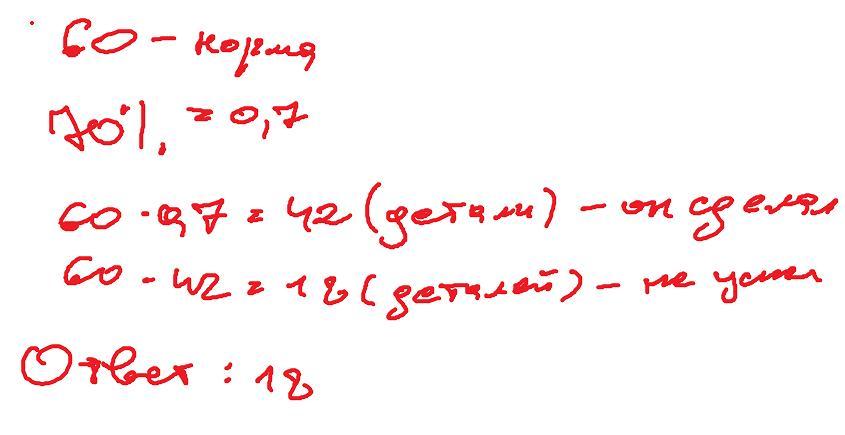 60 - норма
70% = 0,7
60 · 0,7 = 42 (детали) - он сделал
60 - 42 = 18 (деталей) - не успел
Ответ : 18